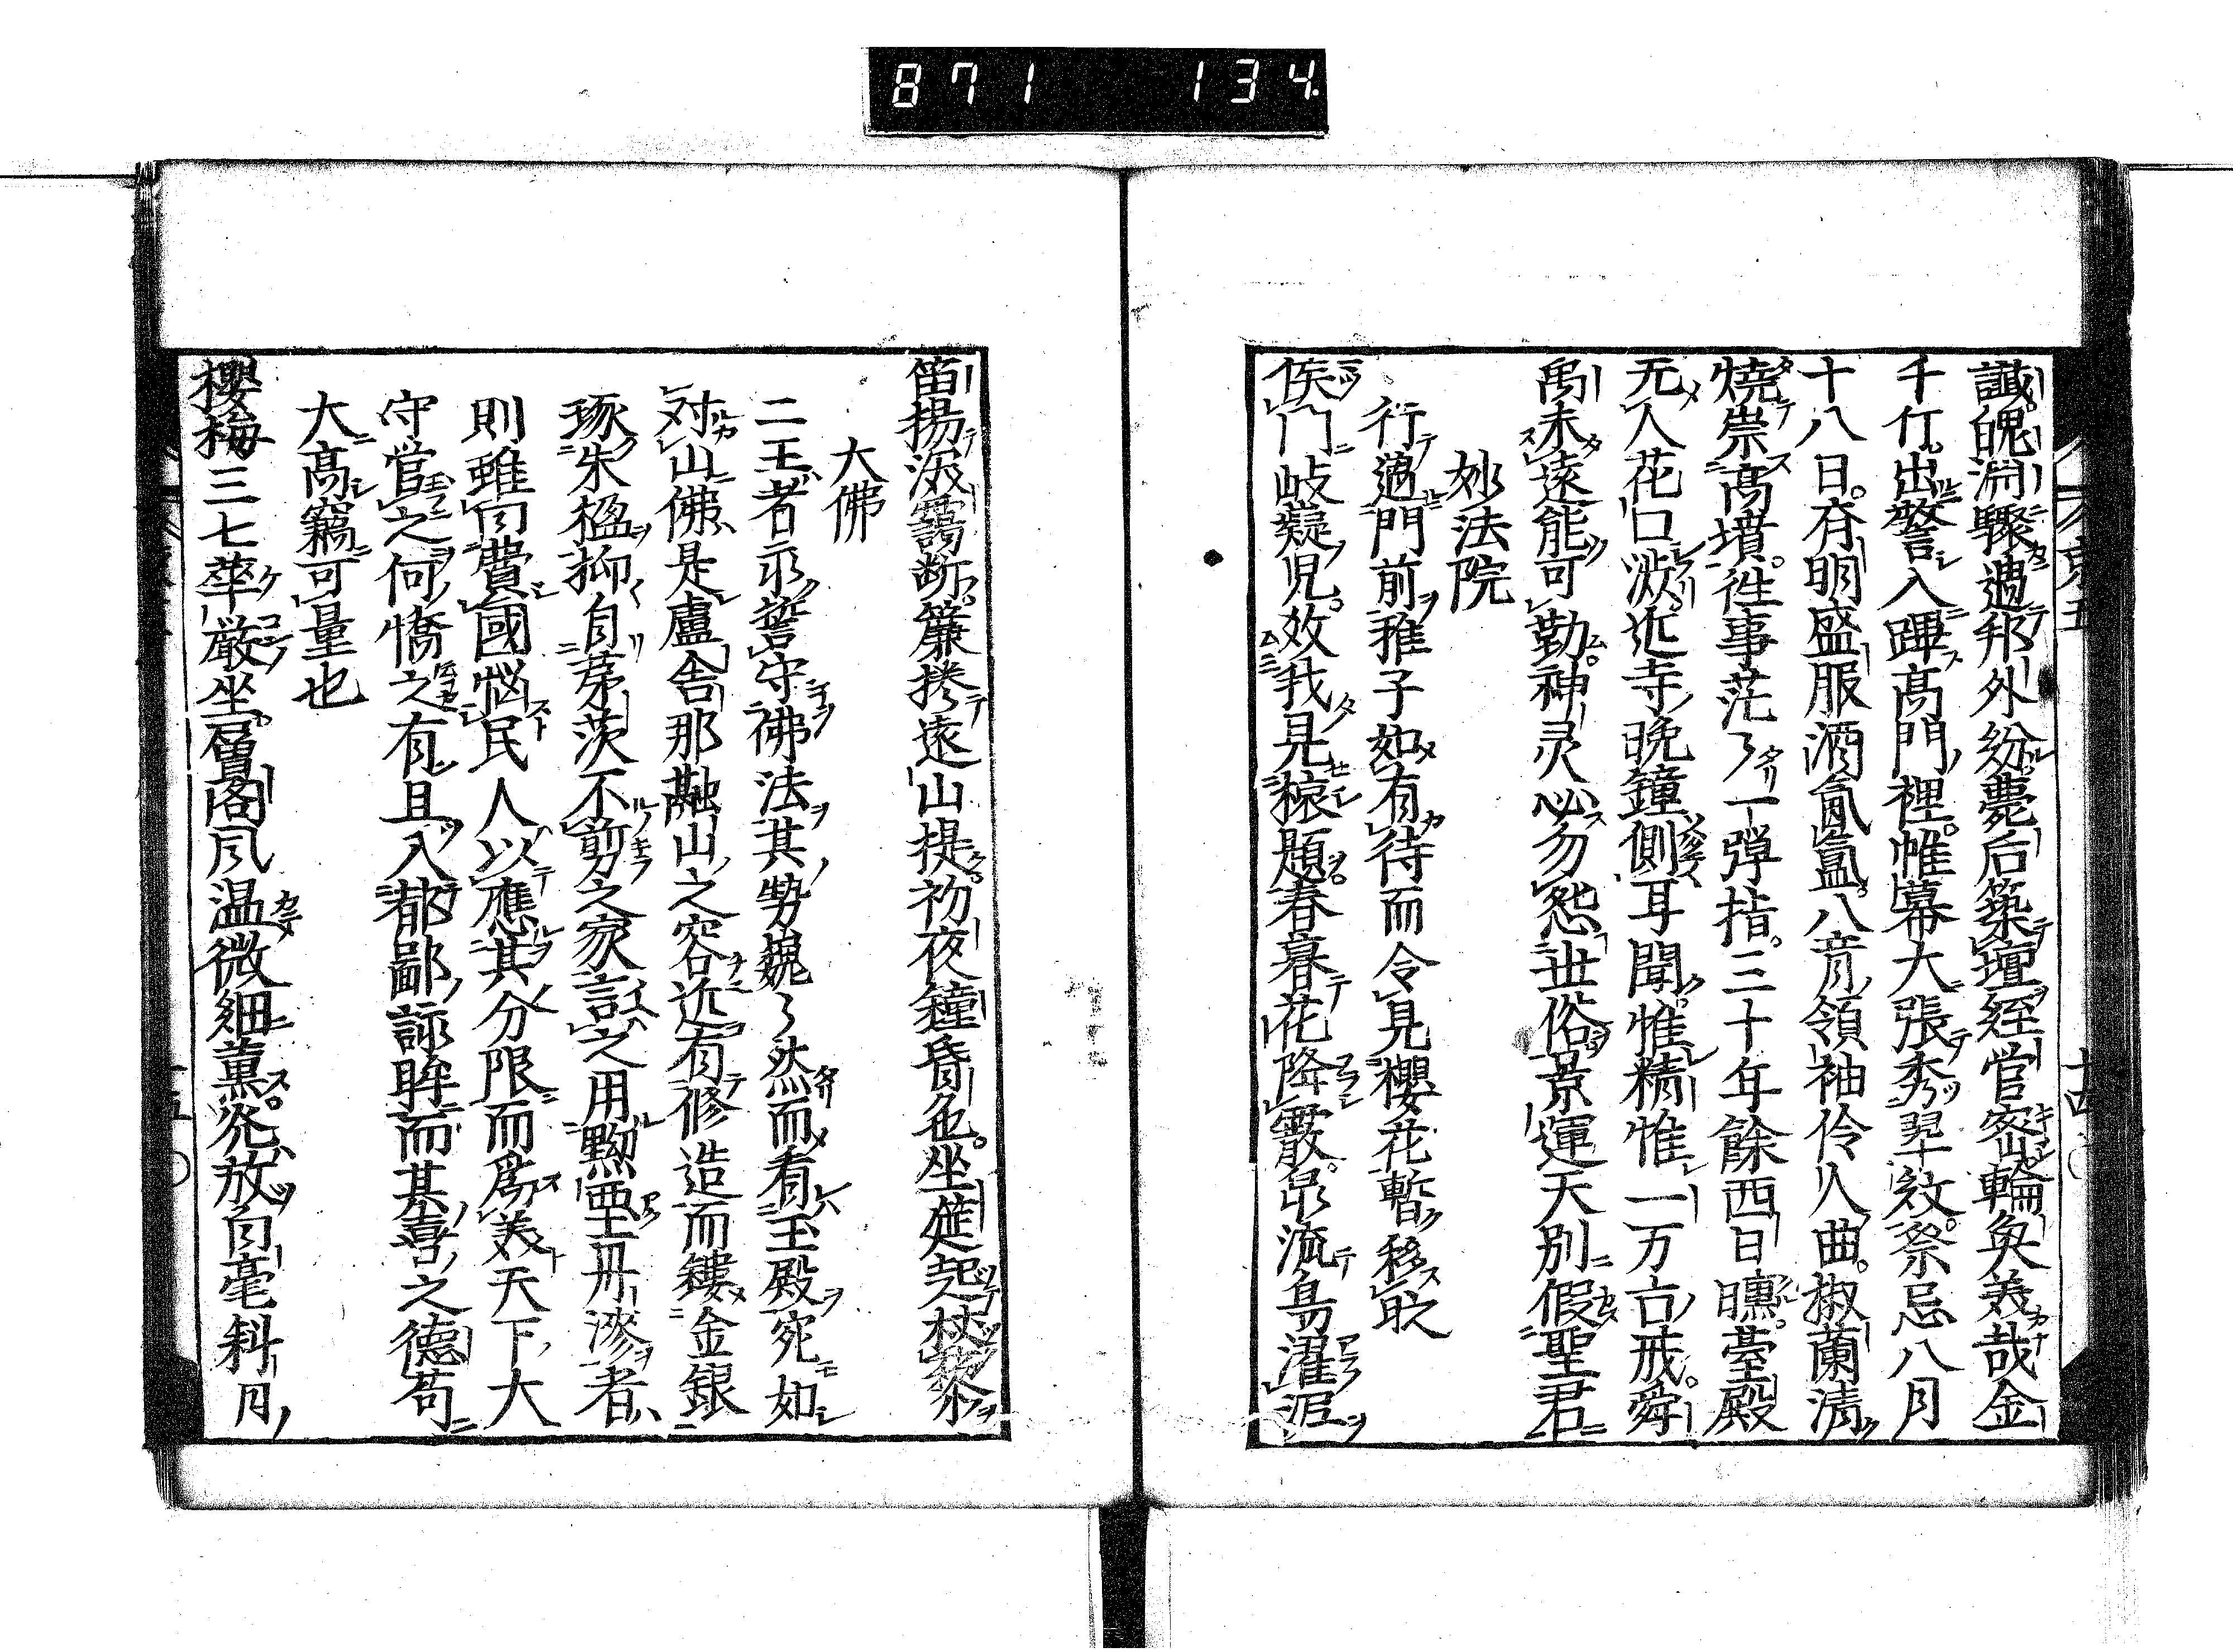 871 134
誠。魄淵驟過邦外紛薨后築壇経営密輪奐美哉金
千仃。出警入蹕髙門裡。帷幕大張秀翠紋。祭忌八月
十八日。斉明盛服酒氤氳。八音領袖伶人曲。椒蘭清
焼崇髙墳。徃事茫々一弾指。三十年餘西日曛。臺殿
无人花口澁。近寺晩鐘側耳聞。惟精惟一万古戒。舜
禹未遠能可勤。神灵必勿怨世俗景運天別假聖君
妙法院
行過門前稚子如有待而令見櫻花暫移趾
侯門岐嶷児。效我見猿題。春暮花降霰。泉流鳥濯泥
笛揚汲靄断。簾捲遠山提。初夜鐘昏色。坐莚起杖藜
大佛
二王者永誓守佛法其勢巍々然而看玉殿宛如
対山佛是盧舎那融山之容近有修造而鏤金銀
琢朱楹抑自茅茨不剪之家言之用黝堊丹漆者
則雖向費國悩民人以應其分限而為美天下大
守営之何憍之有且入都鄙詠眸而甚喜之德苟
大髙竊可量也
櫻梅三七華厳坐。層閣凨温微細薫。発放白毫科月